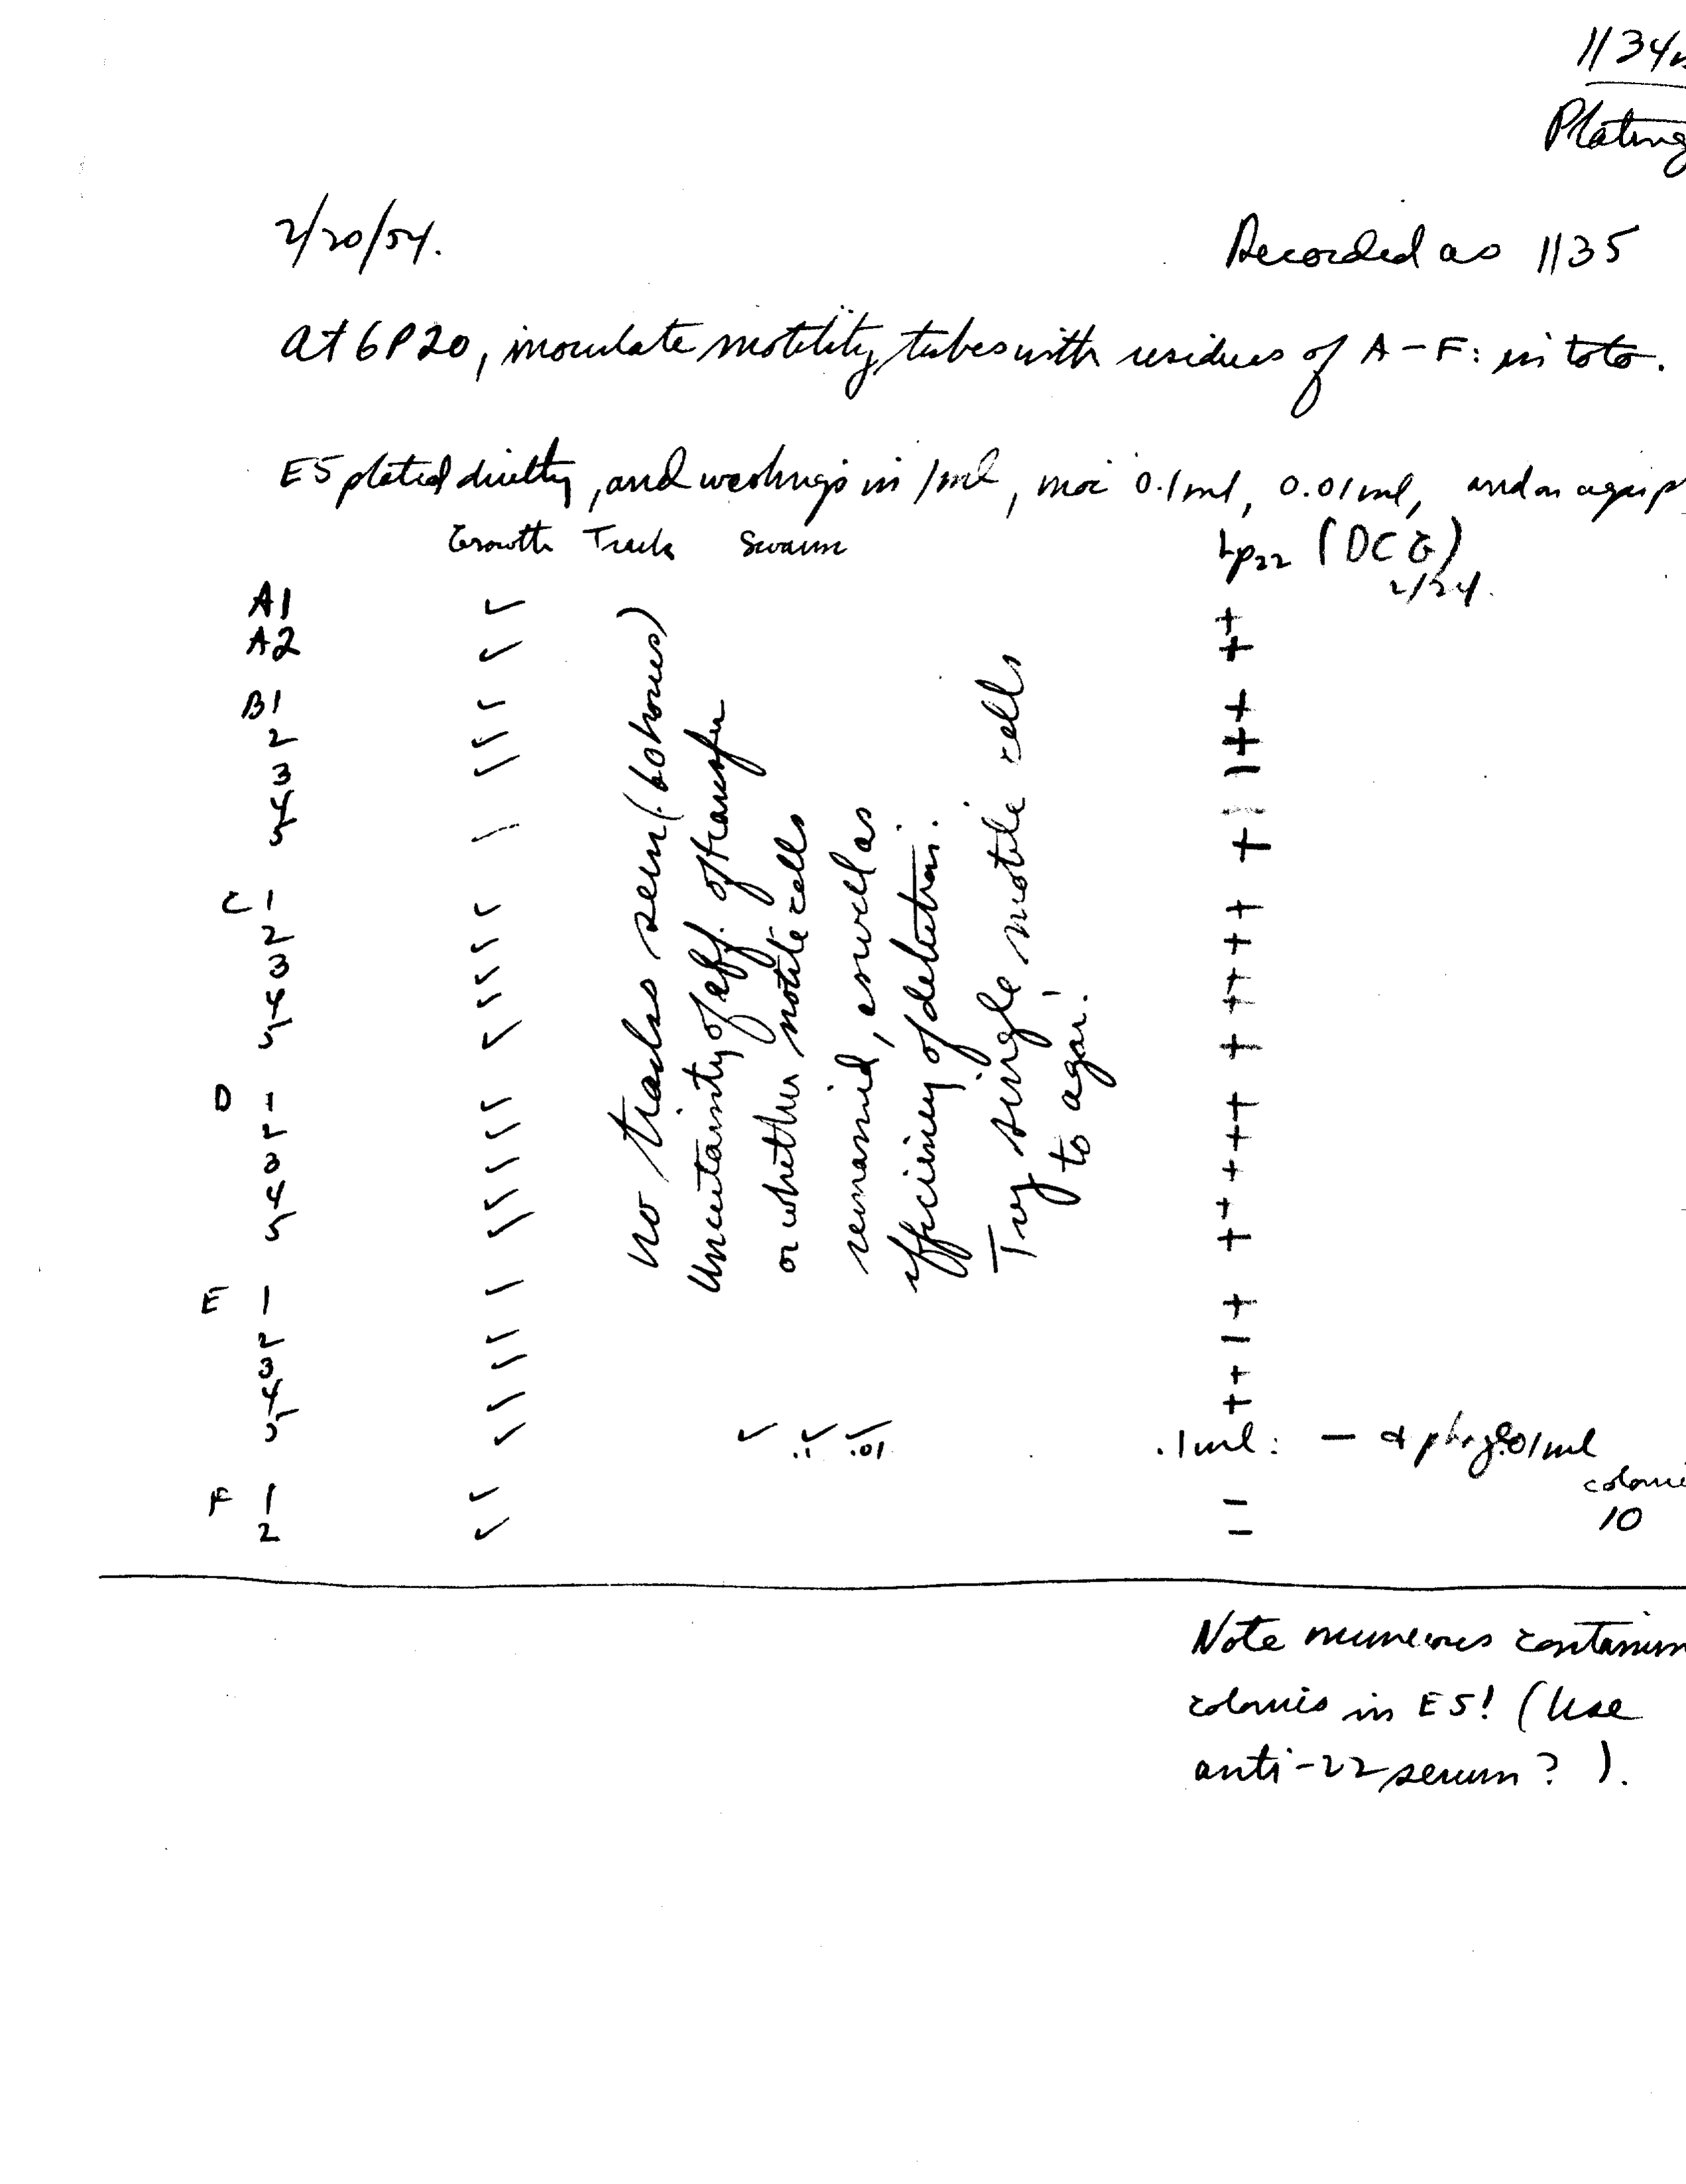 1134
Plating
2/20/54.
Recorded as 1135
At 6P20, inoculate motility tubes with residues of A–F: in toto.
E5 plated directly, and washings in 1ml, 0.1ml, 0.01ml, and on agar
Growth Track Swarm Lp22 (DCG)
2/24.
A1 ✓ +
A2 ✓ +
B1 ✓ +
2 ✓ +
3 ✓ –
4
5 +
C 1 ✓ +
2 ✓ +
3 ✓ +
4 ✓ +
5 ✓ +
D 1 ✓ +
2 ✓ +
3 ✓ +
4 ✓ +
5 ✓ +
E 1 ✓ +
2 ✓ –
3 ✓ +
4 ✓ +
5 ✓ ✓ ✓ ✓ .1ml: – phage .01ml
.1 .01
colonie
F 1 ✓ – 10
2 ✓ –
no tracks seen (60 hours)
Uncertainty of eff. of transfer
or whether motile cells
remained, as well as
efficiency of detection.
Try single motile cells
to agar!
Note numerous contamin
colonies in E5! (Use
anti-22 serum? ).